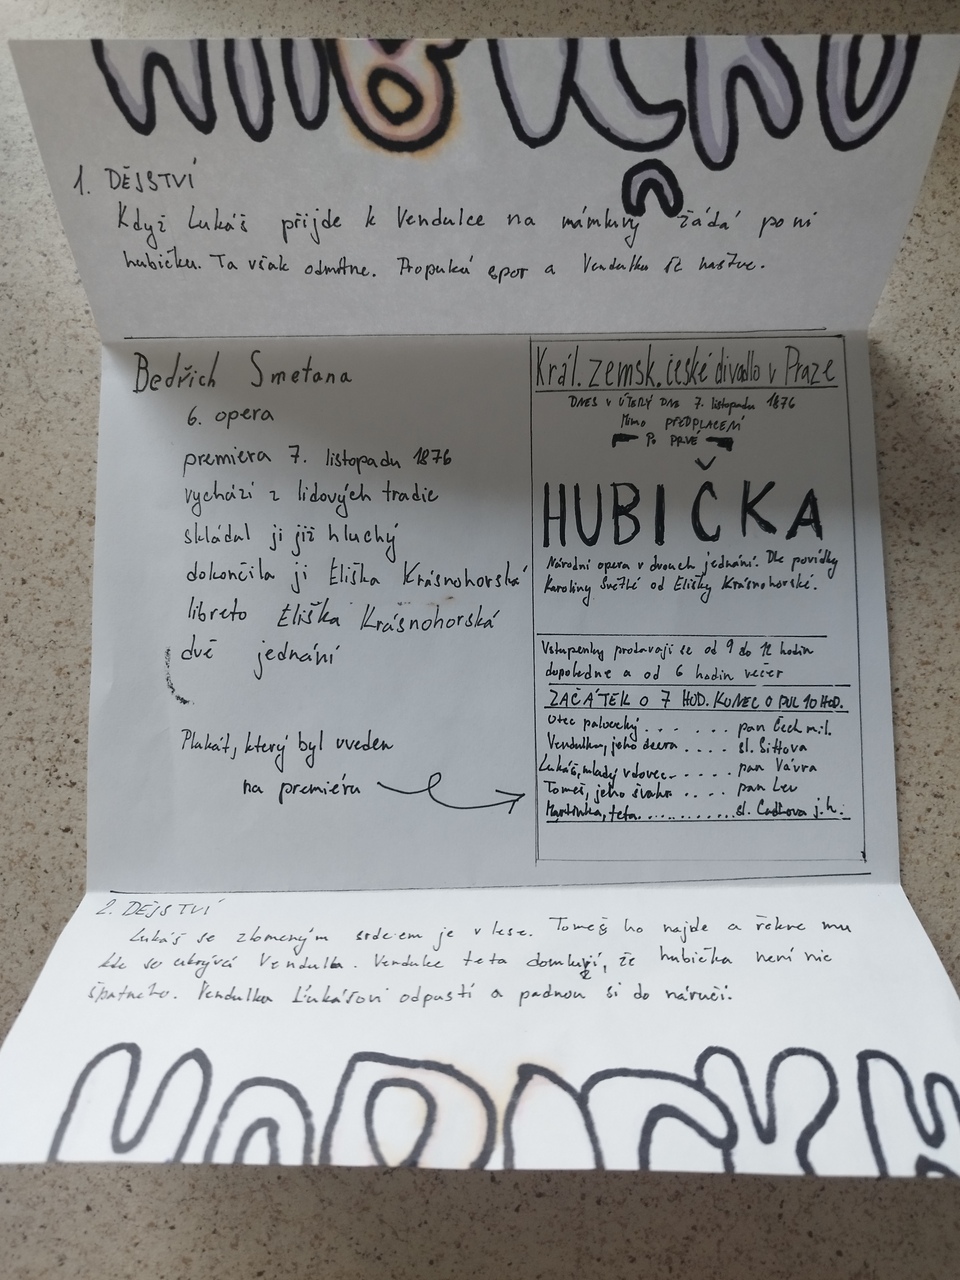 1. DĚJSTVÍ
Když Lukáš přijde k Vendulce na námluvy žádá po ní
hubičku. Ta však odmítne. Propuká spor a Vendulka se naštve.
Bedřich Smetana
6. opera
premiera 7. listopadu 1876
vychází z lidových tradic
skládal ji již hluchý
dokončila ji Eliška Krásnohorská
libreto Eliška Krásnohorská
dvě jednání
Plakát, který byl uveden
na premiéru
Král. zemsk. české divadlo v Praze
DNES V ÚTERÝ DNE 7. listopadu 1876
Mimo PŘEDPLACENÍ
Po PRVÉ
HUBIČKA
Národní opera v dvouch jednání. Dle povídky
Karoliny Světlé od Elišky Krásnohorské.
Vstupenky prodavají se od 9 do 12 hodin
dopoledne a od 6 hodin večer
ZAČÁTEK O 7 HOD. KONEC O PŮL 10 HOD.
Otec paloucký . . . . . . pan Čech ml.
Vendulka, jeho dcera . . . . sl. Sittova
Lukáš, mladý vdovec . . . . . pan Vávra
Tomeš, jeho švakr . . . . pan Lev
Martinka, teta . . . . . . . . . . . sl. Cachova j.h.
2. DĚJSTVÍ
Lukáš se zlomeným srdcem je v lese. Tomeš ho najde a řekne mu
kde se ukrývá Vendulka. Vendulce teta domluví, že hubička není nic
špatného. Vendulka Lukášovi odpustí a padnou si do náručí.